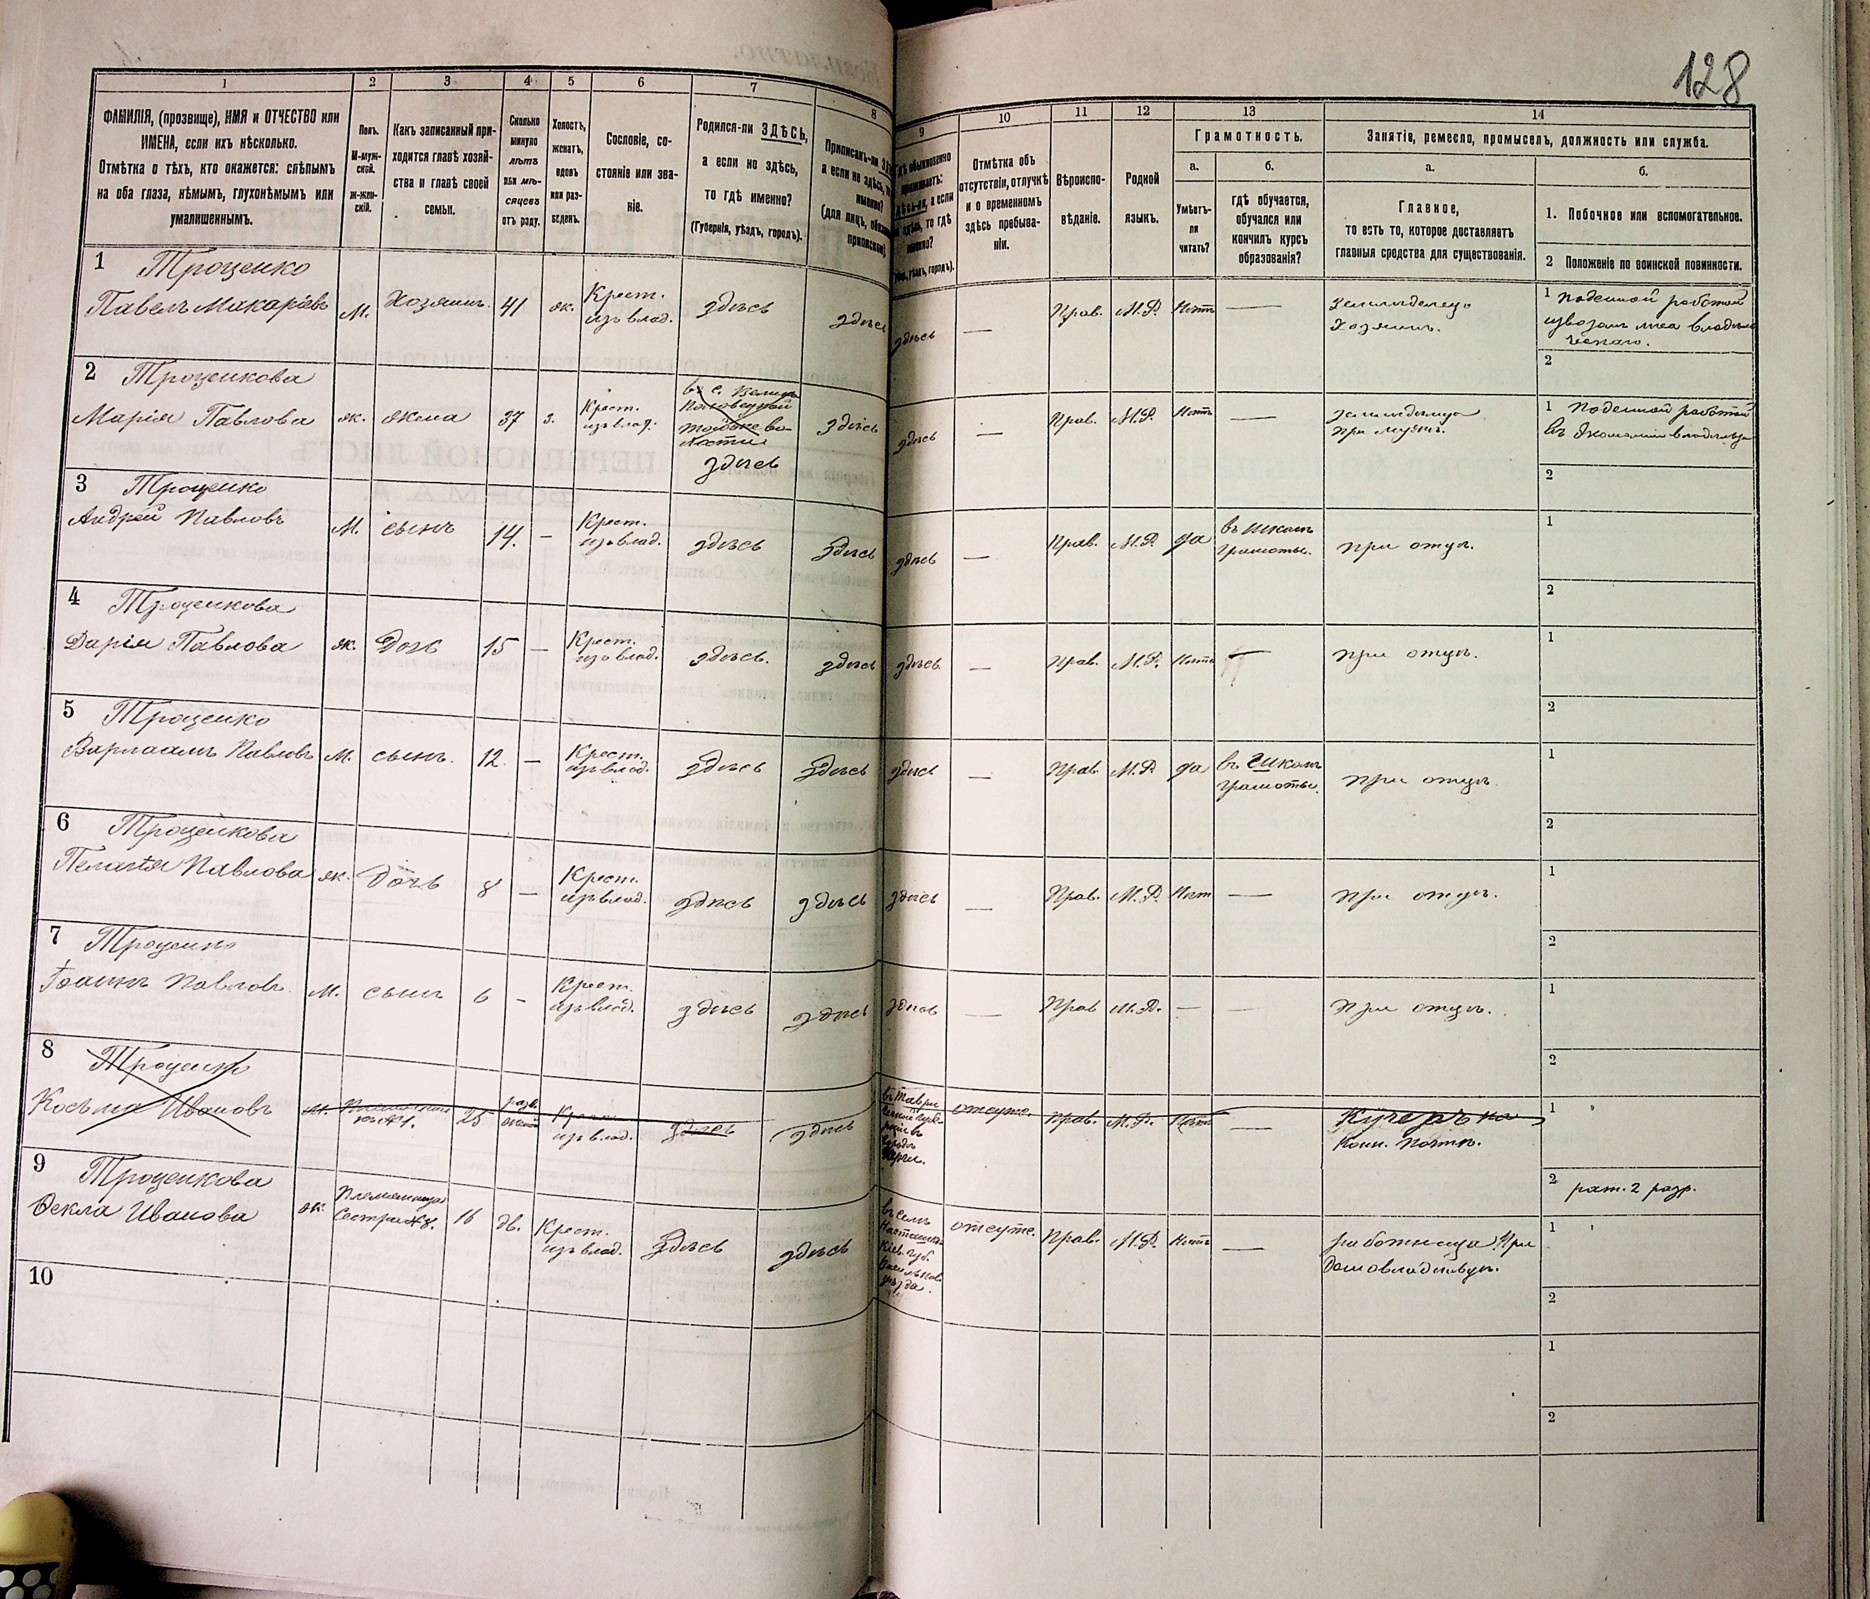 128
1 2 3 4 5 6 7 8
ФАМИЛІЯ, (прозвище), ИМЯ и ОТЧЕСТВО или
ИМЕНА, если ихъ нѣсколько.
Отмѣтка о тѣхъ, кто окажется: слѣпымъ
на оба глаза, нѣмымъ, глухонѣмымъ или
умалишеннымъ.
Полъ.
М-муж-
ской.
ж-жен-
скій.
Какъ записанный при-
ходится главѣ хозяй-
ства и главѣ своей
семьи.
Сколько
минуло
лѣтъ
или мѣ-
сяцевъ
отъ роду.
Холостъ,
женатъ,
вдовъ
или раз-
веденъ.
Сословіе, со-
стояніе или зва-
ніе.
Родился-ли ЗДѢСЬ,
а если не здѣсь,
то гдѣ именно?
(Губернія, уѣздъ, городъ).
Приписанъ-ли
а если не здѣсь,
9 10 11 12 13 14
Отмѣтка объ
отсутствіи, отлучкѣ
и о временномъ
здѣсь пребыва-
ніи.
Вѣроиспо-
вѣданіе.
Родной
языкъ.
Грамотность.
а.
Умѣетъ-
ли
читать?
б.
гдѣ обучается,
обучался или
кончилъ курсъ
образованія?
Занятіе, ремесло, промыселъ, должность или служба.
а.
Главное,
то есть то, которое доставляетъ
главныя средства для существованія.
б.
1. Побочное или вспомогательное.
2 Положеніе по воинской повинности.
1 Троценко
Павелъ Макаріевъ М. Хозяинъ. 41 ж. Крест.
изъ влад. здѣсь здѣсь здѣсь — Прав. М.Р. Нѣтъ — Земледѣлецъ
Хозяинъ.
1 поденной работой
2
2 Троценкова
Марія Павлова ж. жена 37 з. Крест.
изъ влад.
здѣсь здѣсь здѣсь — Прав. М.Р. Нѣтъ —
при мужѣ.
1 Поденной работой
2
3 Троценко
Андрей Павловъ М. сынъ 14. — Крест.
изъ влад. здѣсь здѣсь здѣсь — Прав. М.Р. да въ школѣ
грамоты. при отцѣ.
1
2
4 Троценкова
Дарія Павлова ж. Дочь 15 — Крест.
изъ влад. здѣсь. здѣсь здѣсь — Прав. М.Р. Нѣтъ — при отцѣ.
1
2
5 Троценко
Варлаамъ Павловъ М. сынъ. 12. — Крест.
изъ влад. здѣсь здѣсь здѣсь — Прав. М.Р. да въ школѣ
грамоты. при отцѣ.
1
2
6 Троценкова
Пелагія Павлова ж. Дочь 8 — Крест.
изъ влад. здѣсь здѣсь здѣсь — Прав. М.Р. Нѣт — при отцѣ.
1
2
7 Троценко
Іоаннъ Павловъ М. сынъ 6 - Крест.
изъ влад. здѣсь здѣсь здѣсь — Прав М.Р. — — при отцѣ.
1
2
8 Троценко
Косьма Ивановъ М. 25 Крест.
изъ влад. здѣсь здѣсь отсутс. Прав. М.Р. Нѣтъ — Кучеръ на
1
2 рат. 2 разр.
9 Троценкова
Ѳекла Иванова ж. Племянница
16 дѣ. Крест.
изъ влад. здѣсь здѣсь
въ селѣ
Кіев. губ.
отсутс. Прав. М.Р. Нѣтъ — работница при
домовладѣльцѣ.
1
2
10
1
2